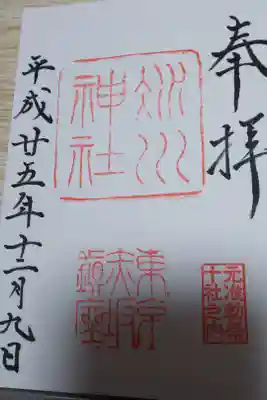 奉拝
元准勅祭
十社之内
氷川
神社
東京
赤坂
鎮座
平成廿五年十二月九日